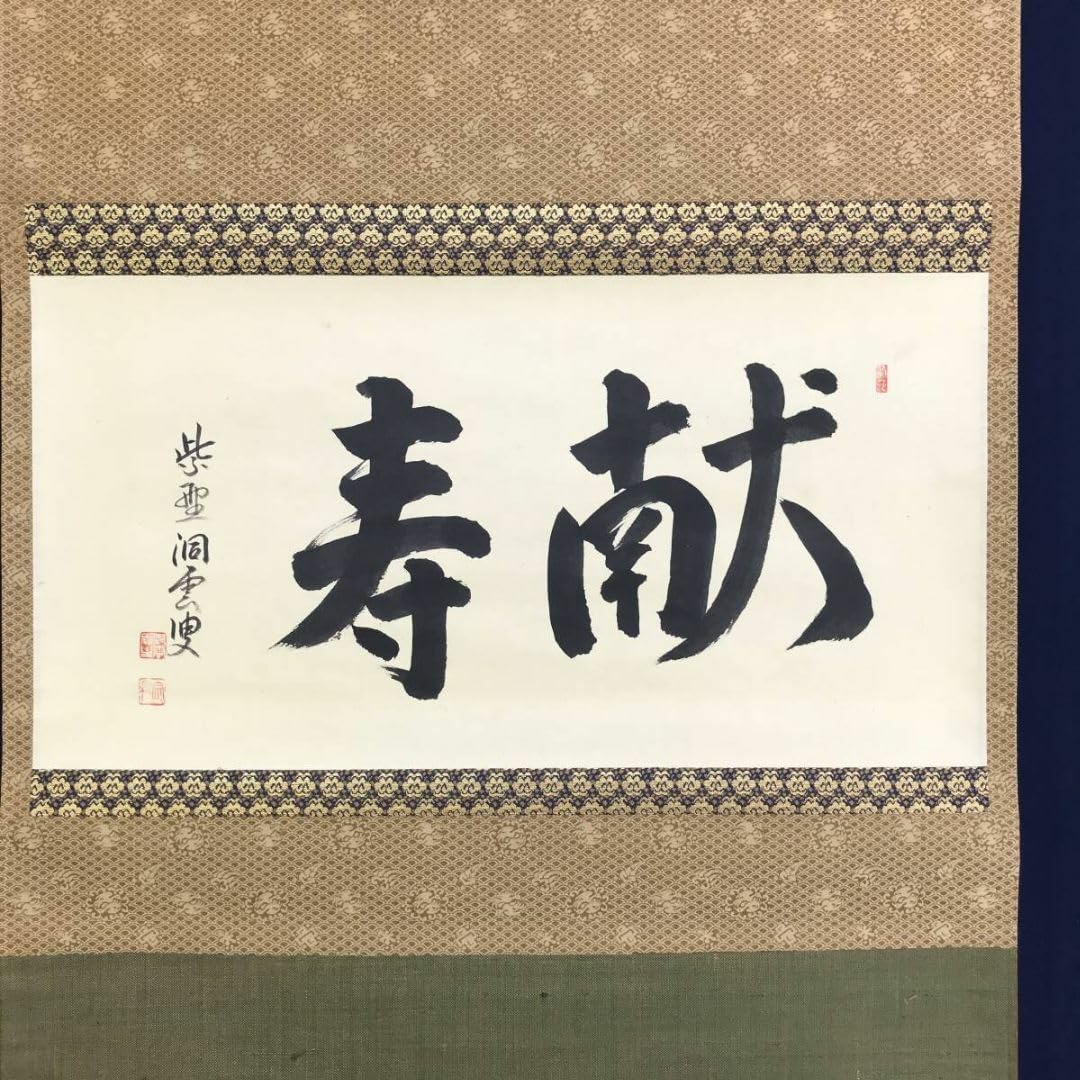 献寿
紫野洞雲叟